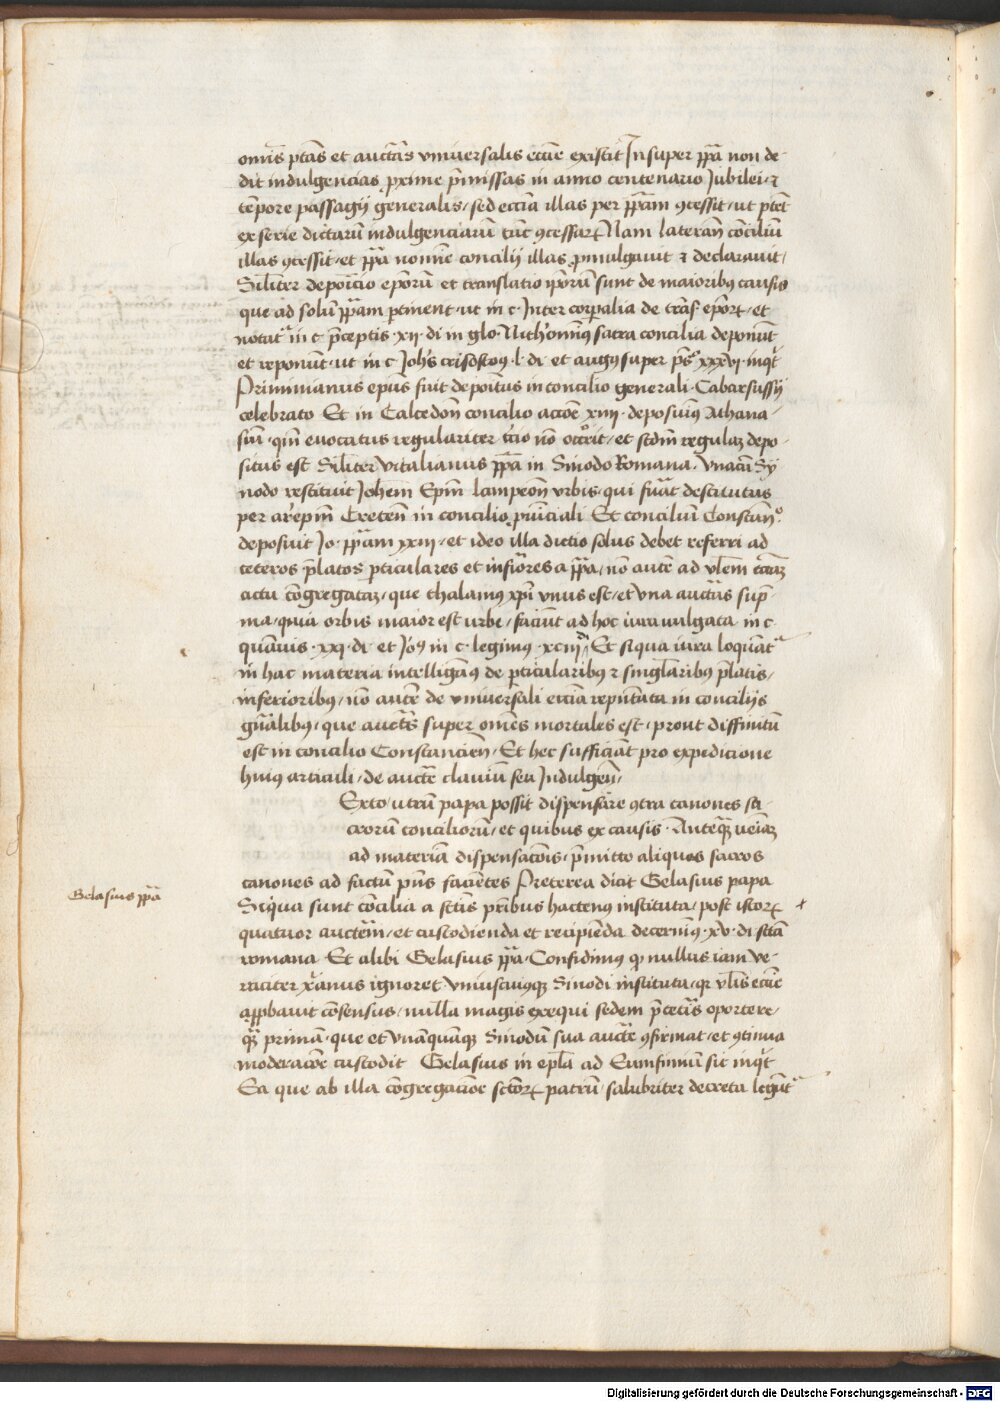 om̄is ptās et auctās vniuersalis eccīe existit Insuper ppā non de-
dit indulgencias ꝓxime p̄missas in anno centenario Jubilei ⁊
tēpore passagij generalis sed ecclīa illas per ppām ꝯcessit ut ptēt
ex serie dictarū indulgenciarū tūc ꝯcessarꝝ Nam laterān cōciliū
illas ꝯcessit et ppā nomīe concilij illas ꝓmulgauit ⁊ declarauit
Silīter deposicio epōrū et translatio ipōrū sunt de maioribus causis
que ad solū ppām pertinent ut in c Inter corpalia de trās epōrꝝ et
notatur in c p̄ceptis xij di in glo Nichominꝰ sacra concilia deponūt
et reponūt ut in c Johēs crisostoꝰ l di et augꝰ super psͦ xxxvi inqͥt
Priminianus epūs fuit deposītus in concilio generali Cabarsussij
celebrato Et in Calcedoñ concilio accōe xiiij deposuimꝰ Athana
siū qm̄ euocatus regulariter t̄cio nō occͦrit et scdm̄ regulaꝫ depo
situs est Silīter Vitalianus ppā in Sinodo Romana vnacū Sy
nodo restituit Johēm Epm̄ lampeoñ vrbis qui fuāt destitutus
per arepm̄ Creteñ in concilio ꝓuīciali Et conciliū Constanͦ
deposuit Jo ppām xxiij et ideo illa dictio solus debet referri ad
ceteros p̄latos ꝑticulares et īferiores a ppā nō autē ad vlēm
actu cōgregataꝫ que thalamꝰ xp̄i vnus est et vna auctās sup̄
ma quia orbis maior est urbe faciūt ad hoc iura vulgata in c
quāuis xxj di et Joꝰ in c legimus xciij Et siqua iura loquātur
in hac materia intelligāꝰ de ꝑticularibus ⁊ singlāribus p̄latis
inferioribus nō autē de vniuersali ecclīa rep̄ntata in concilijs
gn̄alibus que auctās super om̄es mortales est prout diffinitū
est in concilio Constancieñ Et hec sufficiāt pro expedicione
huius articuli de auctē clauiū seu Indulgeñ
Exto utrū papa possit dispensāre ꝯtra canones sa
crorum conciliorū et quibus ex causis Anteqͣꝫ ueniaꝫ
ad materiā dispensacōis p̄mitto aliquos sacros
canones ad factū pn̄s faciētes Preterea dicit Gelasius papa
Gelasius ppā
Siqua sunt cōcilia a scīs prībus hactenus instituta post istorꝝ
quatuor auctem̄ et custodienda et recipiēda decernimꝰ xv di scā
romana Et alibi Gelasius ppā Confidimꝰ qͥ nullus iam ve-
raciter xrianus ignoret vniuscuiusqꝫ Sinodi instituta qͥ vlīs eccīe
aꝓbauit cōsensus nullā magis exequi sedem p̄cet̄is oportere
qͣꝫ primā que et Vnāquāqꝫ Sinodū sua auctē ꝯfirmat et ꝯtinua
moderacōe custodit Gelasius in eplā ad Eumfimiū sic inqͥt
Ea que ab illa cōgregacōe sctōrꝝ patrū salubriter decreta legūtur